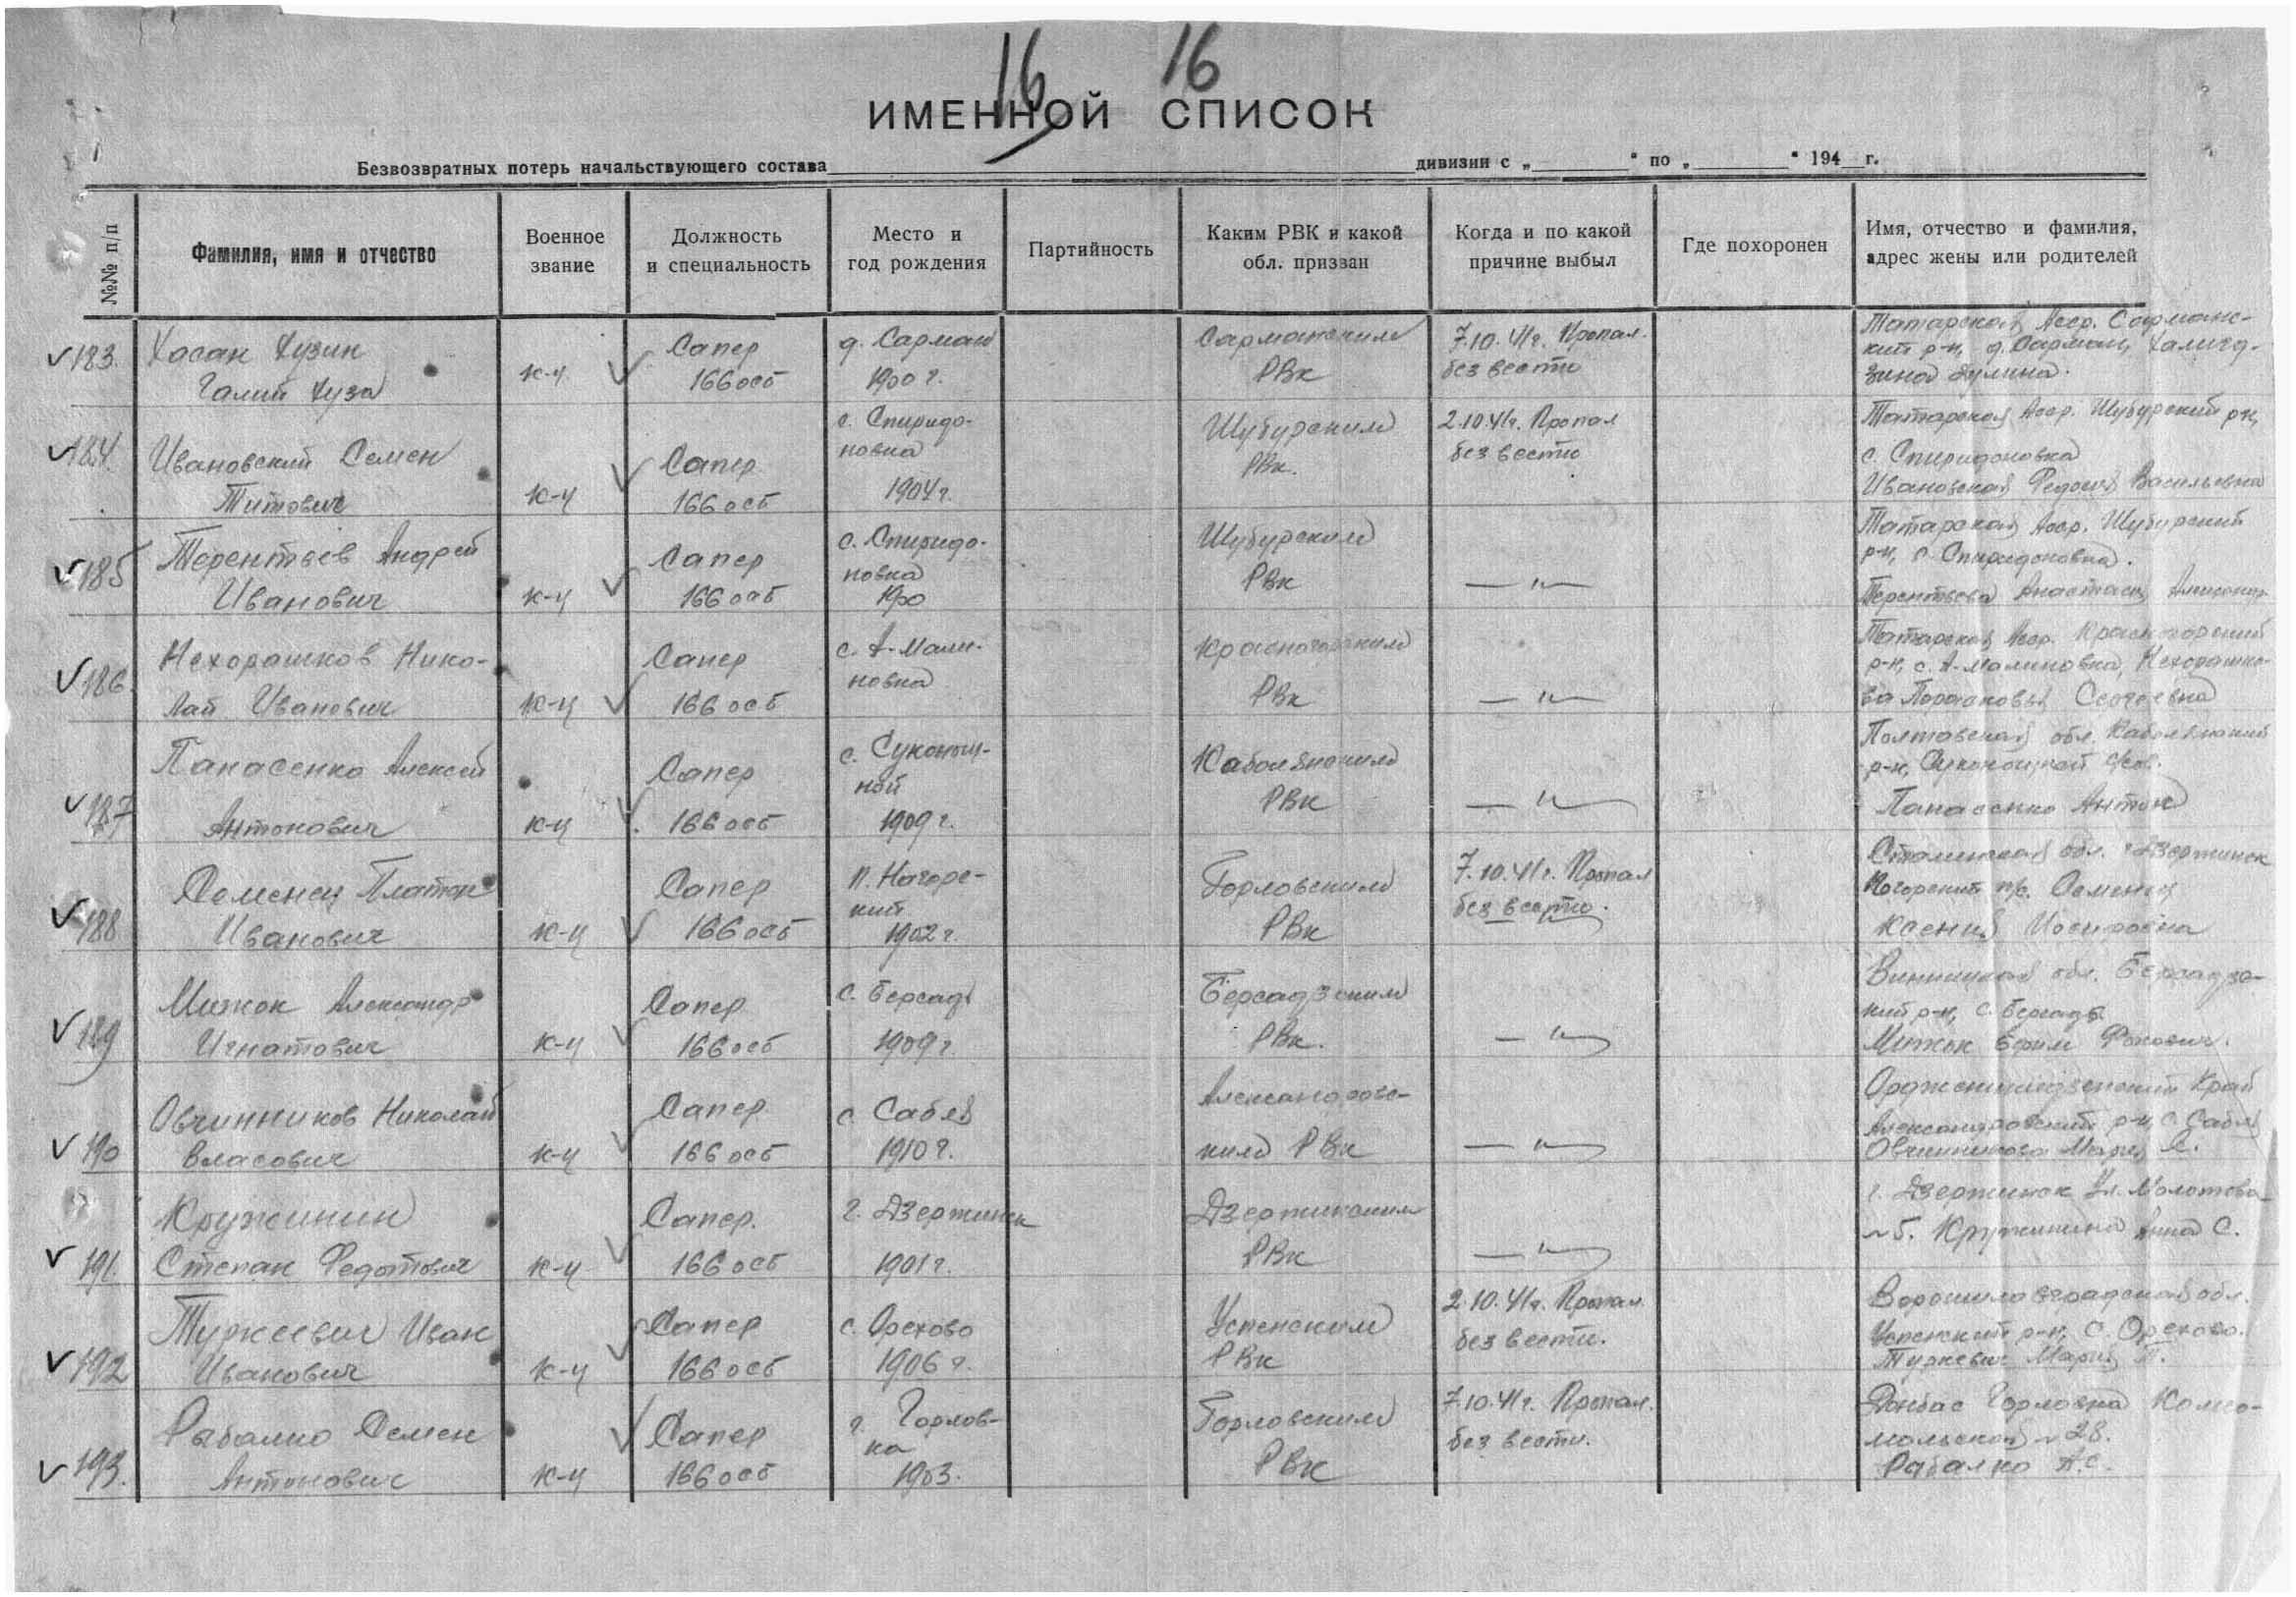 16 16
ИМЕННОЙ СПИСОК
Безвозвратных потерь начальствующего состава дивизии с „ " по „ " 194 г.
№№ п/п
Фамилия, имя и отчество
Военное звание
Должность и специальность
Место и год рождения
Партийность
Каким РВК и какой обл. призван
Когда и по какой причине выбыл
Где похоронен
Имя, отчество и фамилия, адрес жены или родителей
183. Хасан Хузин
Галий Хуза
к-ц
Сапер
166 осб
д. Сарман
1900 г.
Сармановским
РВк
7.10.41г. Пропал
без вести
Татарская Асср. Сарманс-
кий р-н, д. Сарман,
184. Ивановский Семен
Титович
к-ц
Сапер
166 осб
с. Спиридо-
новка
1904г.
Шубурским
РВк.
2.10.41г. Пропал
без вести
Татарская Асср. Шубурский рн,
с. Спиридоновка
Ивановская Федосия Васильевна
185 Терентьев Андрей
Иванович
к-ц
Сапер
166 осб
с. Спиридо-
новка
1900
Шубурским
РВк
— " —
Татарская Асср. Шубурский
р-н, с. Спиридоновка.
Терентьева Анастасия
186. Нехорашков Нико-
лай Иванович
к-ц
Сапер
166 осб
с. А-Мали-
новка
Красногорским
РВк
— " —
Татарская Асср. Красногорский
р-н, с. А-Малиновка, Нехорашко-
ва Сергеевна
187 Панасенко Алексей
Антонович
к-ц
Сапер
166 осб
с.
ной
1909 г.
РВк
— " —
Полтавская обл.
р-н,
Панасенко Антон
188 Семенец Платон
Иванович
к-ц
Сапер
166 осб
п. Нагорс-
кий
1902 г.
Горловским
РВк
7.10.41г. Пропал
без вести.
Сталинская обл. г. Дзержинск
Семенец
Ксения Иосиповна
189 Мижок Александр
Игнатович
к-ц
Сапер
166 осб
с. Берсадь
1909 г.
Берсадзским
РВк.
— " —
Винницкая обл. Берсадзс-
кий р-н, с. Берсадь
Мижок Ефим Фокович.
190 Овчинников Николай
Власович
к-ц
Сапер
166 осб
с Сабля
1910 г.
Александровс-
ким РВк
— " —
Орджоникидзенский Край
Александровский р-н, с. Сабля
Овчинникова Мария Я.
191. Кружинин
Степан Федотович
к-ц
Сапер.
166 осб
г. Дзержинск
1901 г.
Дзержинским
РВк
— " —
г. Дзержинск Ул. Молотова
~ 5. Кружинина Анна С.
192 Туркевич Иван
Иванович
к-ц
Сапер
166 осб
с. Орехово
1906 г.
Успенским
РВк
2.10.41г. Пропал
без вести.
Ворошиловградская обл.
Успенский р-н, с. Орехово.
Туркевич Мария П.
193. Рыбалко Семен
Антонович
к-ц
Сапер
166 осб
г. Горлов-
ка
1903.
Горловским
РВк
7.10.41г. Пропал.
без вести.
Донбас Горловка Комсо-
мольская ~ 28.
Рабалко А.С.